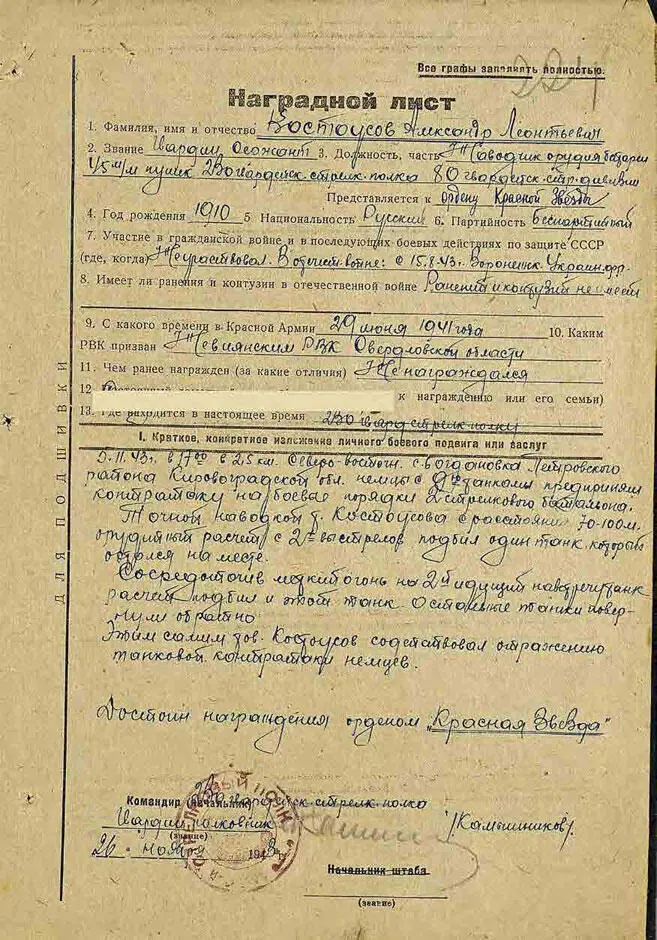 Все графы заполнять полностью.
224
Наградной лист
1. Фамилия, имя и отчество Костоусов Александр Леонтьевич
2. Звание Гвардии Сержант 3. Должность, часть Наводчик орудия батареи
45 м/м пушек 230 гвардейск. стрелк. полка 80 гвардейск. стр. дивизии
Представляется к ордену Красной Звезды
4. Год рождения 1910 5 Национальность Русский 6. Партийность беспартийный
7. Участие в гражданской войне и в последующих боевых действиях по защите СССР
(где, когда) Не участвовал. В отечест. войне: с 15.8.43г. Воронежск. Украин. фр.
8. Имеет ли ранения и контузии в отечественной войне Ранений и контузий не имеет
9. С какого времени в Красной Армии 29 июня 1941 года 10. Каким
РВК призван Невиянским РВК Свердловской области
11. Чем ранее награжден (за какие отличия) Не награждался
12
к награждению или его семьи)
13. Где находится в настоящее время 230 гвард. стрелк. полку
I. Краткое, конкретное изложение личного боевого подвига или заслуг
5.11.43г. в 17 00 в 2.5 км. Северо-восточн. с. Богдановка Петровского
района Кировоградской обл. немцы с 9ю танками предприняли
контратаку на боевые порядки 2 стрелкового батальона.
Точной наводкой т. Костоусова с расстояния 70-100 м.
орудийный расчет с 2х выстрелов подбил один танк, который
остался на месте.
Сосредоточив меткий огонь на 2й идущий навстречу танк
расчет подбил и этот танк. Остальные танки повер-
нули обратно
Этим самим тов. Костоусов содействовал отражению
танковой контратаки немцев.
Достоин награждения орденом „Красная Звезда"
Командир (начальник) 230 гвардейск. стрелк. полка
Гвардии полковник /Камышников/.
(звание)
26 ноября 1943 г.
Начальник штаба
(звание)
ДЛЯ ПОДШИВКИ